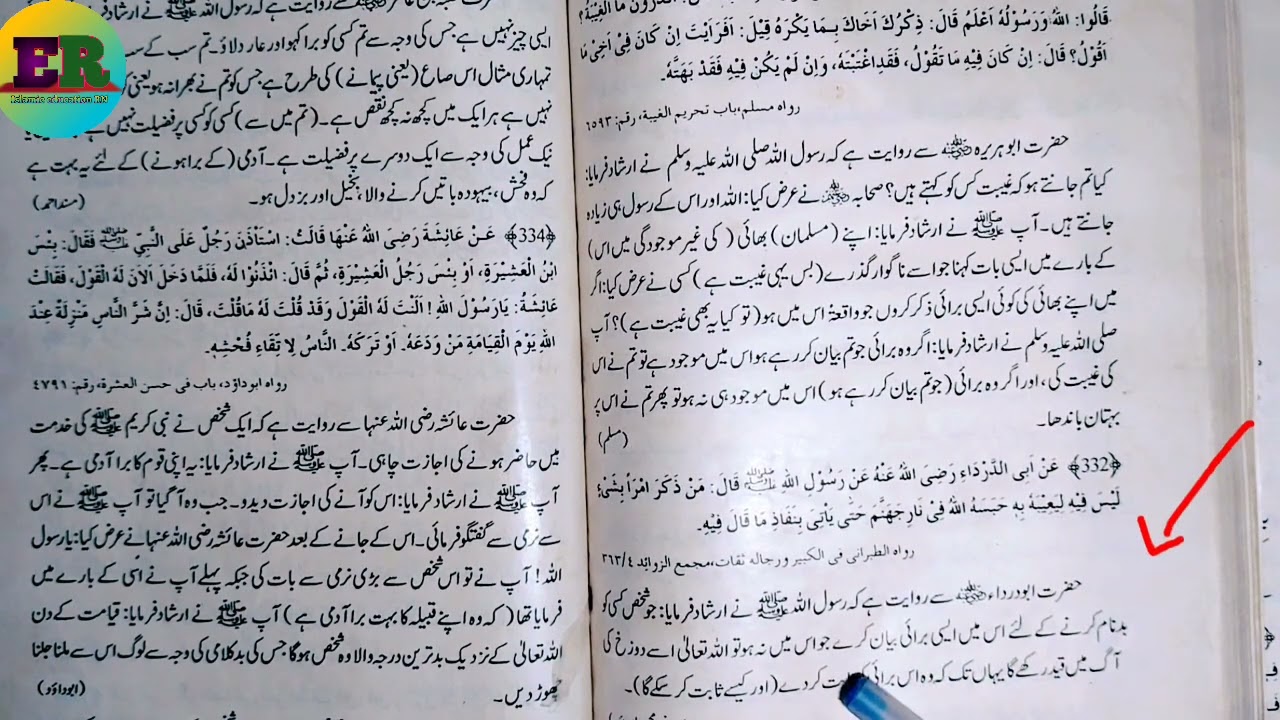 قَالُوا: اَللهُ وَرَسُوْلُهُ اَعْلَمُ قَالَ: ذِكْرُكَ اَخَاكَ بِمَا يَكْرَهُ قِيْلَ: اَفَرَاَيْتَ اِنْ كَانَ فِىْ اَخِىْ مَا
اَقُوْلُ؟ قَالَ: اِنْ كَانَ فِيْهِ مَا تَقُوْلُ، فَقَدِ اغْتَبْتَهُ، وَاِنْ لَمْ يَكُنْ فِيْهِ فَقَدْ بَهَتَّهُ۔
رواه مسلم، باب تحريم الغيبة، رقم: ٦٥٩٣
حضرت ابوہریرہ ؓ سے روایت ہے کہ رسول اللہ صلی اللہ علیہ وسلم نے ارشاد فرمایا:
کیا تم جانتے ہو کہ غیبت کس کو کہتے ہیں؟ صحابہ ؓ نے عرض کیا: اللہ اور اس کے رسول ہی زیادہ
جانتے ہیں۔ آپ ﷺ نے ارشاد فرمایا: اپنے (مسلمان) بھائی (کی غیر موجودگی میں اس)
کے بارے میں ایسی بات کہنا جو اسے ناگوار گذرے (بس یہی غیبت ہے) کسی نے عرض کیا: اگر
میں اپنے بھائی کی کوئی ایسی برائی ذکر کروں جو واقعۃً اس میں ہو (تو کیا یہ بھی غیبت ہے)؟ آپ
صلی اللہ علیہ وسلم نے ارشاد فرمایا: اگر وہ برائی جو تم بیان کر رہے ہو اس میں موجود ہے تو تم نے اس
کی غیبت کی، اور اگر وہ برائی (جو تم بیان کر رہے ہو) اس میں موجود ہی نہ ہو تو پھر تم نے اس پر
بہتان باندھا۔ (مسلم)
﴿332﴾ عَنْ اَبِى الدَّرْدَاءِ رَضِىَ اللهُ عَنْهُ عَنْ رَسُوْلِ اللهِ ﷺ قَالَ: مَنْ ذَكَرَ امْرَأً بِشَىْءٍ
لَيْسَ فِيْهِ لِيَعِيْبَهُ بِهِ حَبَسَهُ اللهُ فِىْ نَارِ جَهَنَّمَ حَتّٰى يَاْتِىَ بِنَفَاذِ مَا قَالَ فِيْهِ۔
رواه الطبرانى فى الكبير ورجاله ثقات، مجمع الزوائد ٣٦٣/٤
حضرت ابودرداء ؓ سے روایت ہے کہ رسول اللہ ﷺ نے ارشاد فرمایا: جو شخص کسی کو
بدنام کرنے کے لئے اس میں ایسی برائی بیان کرے جو اس میں نہ ہو تو اللہ تعالیٰ اسے دوزخ کی
آگ میں قید رکھے گا یہاں تک کہ وہ اس برائی کر دے (اور کیسے ثابت کر سکے گا)۔
سے روایت ہے کہ رسول اللہ ﷺ نے ارشاد
ایسی چیز نہیں ہے جس کی وجہ سے تم کسی کو برا کہو اور عار دلاؤ۔ تم سب کے سب
تمہاری مثال اس صاع (یعنی پیمانے) کی طرح ہے جس کو تم نے بھرا نہ ہو یعنی
نہیں ہے ہر ایک میں کچھ نہ کچھ نقص ہے۔ (تم میں سے) کسی کو کسی پر فضیلت نہیں ہے
نیک عمل کی وجہ سے ایک دوسرے پر فضیلت ہے۔ آدمی (کے برا ہونے) کے لئے یہ بہت ہے
کہ وہ فحش، بیہودہ باتیں کرنے والا، بخیل اور بزدل ہو۔ (مسند احمد)
﴿334﴾ عَنْ عَائِشَةَ رَضِىَ اللهُ عَنْهَا قَالَتْ: اسْتَأْذَنَ رَجُلٌ عَلَى النَّبِيِّ ﷺ فَقَالَ: بِئْسَ
ابْنُ الْعَشِيْرَةِ، اَوْ بِئْسَ رَجُلُ الْعَشِيْرَةِ، ثُمَّ قَالَ: ائْذَنُوْا لَهُ، فَلَمَّا دَخَلَ اَلَانَ لَهُ الْقَوْلَ، فَقَالَتْ
عَائِشَةُ: يَارَسُوْلَ اللهِ! اَلَنْتَ لَهُ الْقَوْلَ وَقَدْ قُلْتَ لَهُ مَا قُلْتَ، قَالَ: اِنَّ شَرَّ النَّاسِ مَنْزِلَةً عِنْدَ
اللهِ يَوْمَ الْقِيَامَةِ مَنْ وَدَعَهُ۔ اَوْ تَرَكَهُ۔ النَّاسُ لِاتِّقَاءِ فُحْشِهِ۔
رواه ابوداوٗد، باب فى حسن العشرة، رقم: ٤٧٩١
حضرت عائشہ رضی اللہ عنہا سے روایت ہے کہ ایک شخص نے نبی کریم ﷺ کی خدمت
میں حاضر ہونے کی اجازت چاہی۔ آپ ﷺ نے ارشاد فرمایا: یہ اپنی قوم کا برا آدمی ہے۔ پھر
آپ ﷺ نے ارشاد فرمایا: اس کو آنے کی اجازت دیدو۔ جب وہ آ گیا تو آپ ﷺ نے اس
سے نرمی سے گفتگو فرمائی۔ اس کے جانے کے بعد حضرت عائشہ رضی اللہ عنہا نے عرض کیا: یا رسول
اللہ! آپ نے تو اس شخص سے بڑی نرمی سے بات کی جبکہ پہلے آپ نے اسی کے بارے میں
فرمایا تھا (کہ وہ اپنے قبیلہ کا بہت برا آدمی ہے) آپ ﷺ نے ارشاد فرمایا: قیامت کے دن
اللہ تعالیٰ کے نزدیک بدترین درجہ والا وہ شخص ہوگا جس کی بدکلامی کی وجہ سے لوگ اس سے ملنا جلنا
چھوڑ دیں۔ (ابوداؤد)
ER
Islamic education RN